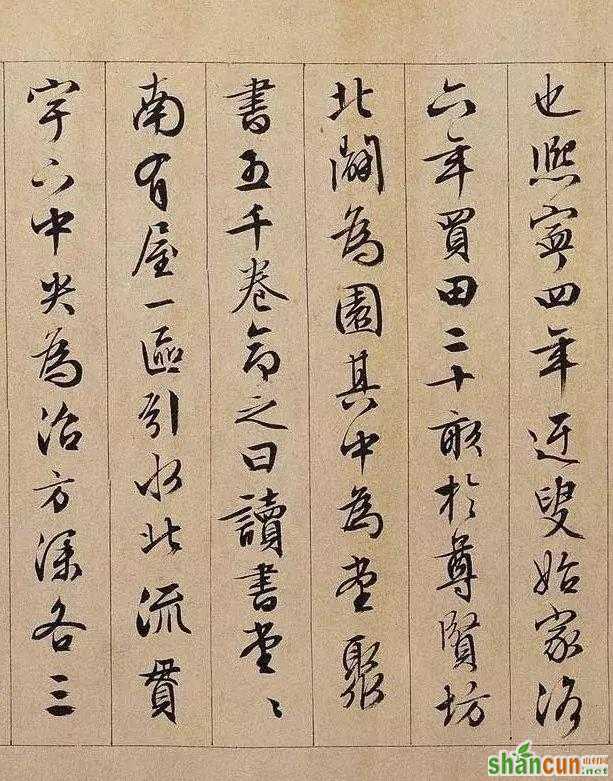 也熙寧四年迂叟始家洛
六年買田二十畝於尊賢坊
北闢為園其中為堂聚
書五千卷命之曰讀書堂〻
南有屋一區引水北流貫
宇下中央為沼方深各三
shancun
山村网
.net